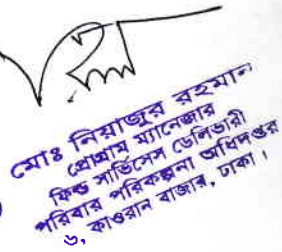 মোঃ নিয়াজুর রহমান
প্রোগ্রাম ম্যানেজার
ফিল্ড সার্ভিসেস ডেলিভারী
পরিবার পরিকল্পনা অধিদপ্তর
৬, কাওরান বাজার, ঢাকা।